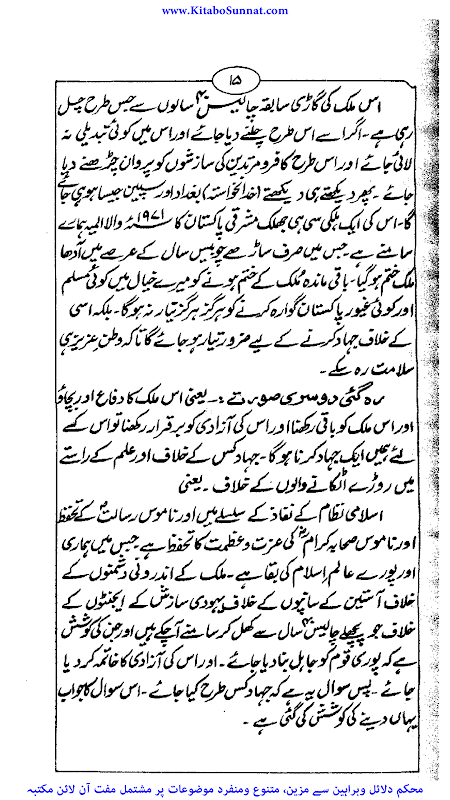 www.KitaboSunnat.com
۱۵
اس ملک کی گاڑی سابقہ چالیس ۴۰ سالوں سے جس طرح چل
رہی ہے۔ اگر اسے اس طرح چلنے دیا جائے اور اس میں کوئی تبدیلی نہ
لائی جائے اور اس طرح کافر و مرتدین کی سازشوں کو پروان چڑھنے دیا
جائے۔ پھر دیکھتے ہی دیکھتے (خدانخواستہ) بغداد اور سپین جیسا ہو ہی جائے
گا۔ اس کی ایک ہلکی سی ہی جھلک مشرقی پاکستان کا ۱۹۷۱ء والا المیہ ہمارے
سامنے ہے۔ جس میں صرف ساڑھے چوبیس سال کے عرصے میں آدھا
ملک ختم ہو گیا۔ باقی ماندہ ملک کے ختم ہونے کو میرے خیال میں کوئی مسلم
اور کوئی غیور پاکستان گوارہ کرنے کو ہرگز ہرگز تیار نہ ہو گا۔ بلکہ اسی
کے خلاف جہاد کرنے کے لیے ضرور تیار ہو جائے گا تاکہ وطن عزیز ہی
سلامت رہ سکے۔
رہ گئی دوسری صورتے :۔ یعنی اس ملک کا دفاع اور بچاؤ
اور اس ملک کو باقی رکھنا اور اس کی آزادی کو برقرار رکھنا تو اس کے
لئے ہمیں ایک جہاد کرنا ہو گا۔ جہاد کس کے خلاف اور علم کے راستے
میں روڑے اٹکانے والوں کے خلاف۔ یعنی
اسلامی نظام کے نفاذ کے سلسلے میں اور ناموس رسالتؐ کے تحفظ
اور ناموس صحابہ کرامؓ کی عزت و عظمت کا تحفظ ہے۔ جس میں ہماری
اور پورے عالم اسلام کی بقا ہے۔ ملک کے اندرونی دشمنوں کے
خلاف آستین کے سانپوں کے خلاف یہودی سازش کے ایجنٹوں کے
خلاف جو پچھلے چالیس ۴۰ سال سے کھل کر سامنے آ چکے ہیں اور جن کی کوشش
ہے کہ پوری قوم کو جاہل بنا دیا جائے۔ اور اس کی آزادی کا خاتمہ کر دیا
جائے۔ پس سوال یہ ہے کہ جہاد کس طرح کیا جائے۔ اس سوال کا جواب
یہاں دینے کی کوشش کی گئی ہے۔
محکم دلائل وبراہین سے مزین، متنوع ومنفرد موضوعات پر مشتمل مفت آن لائن مکتبہ